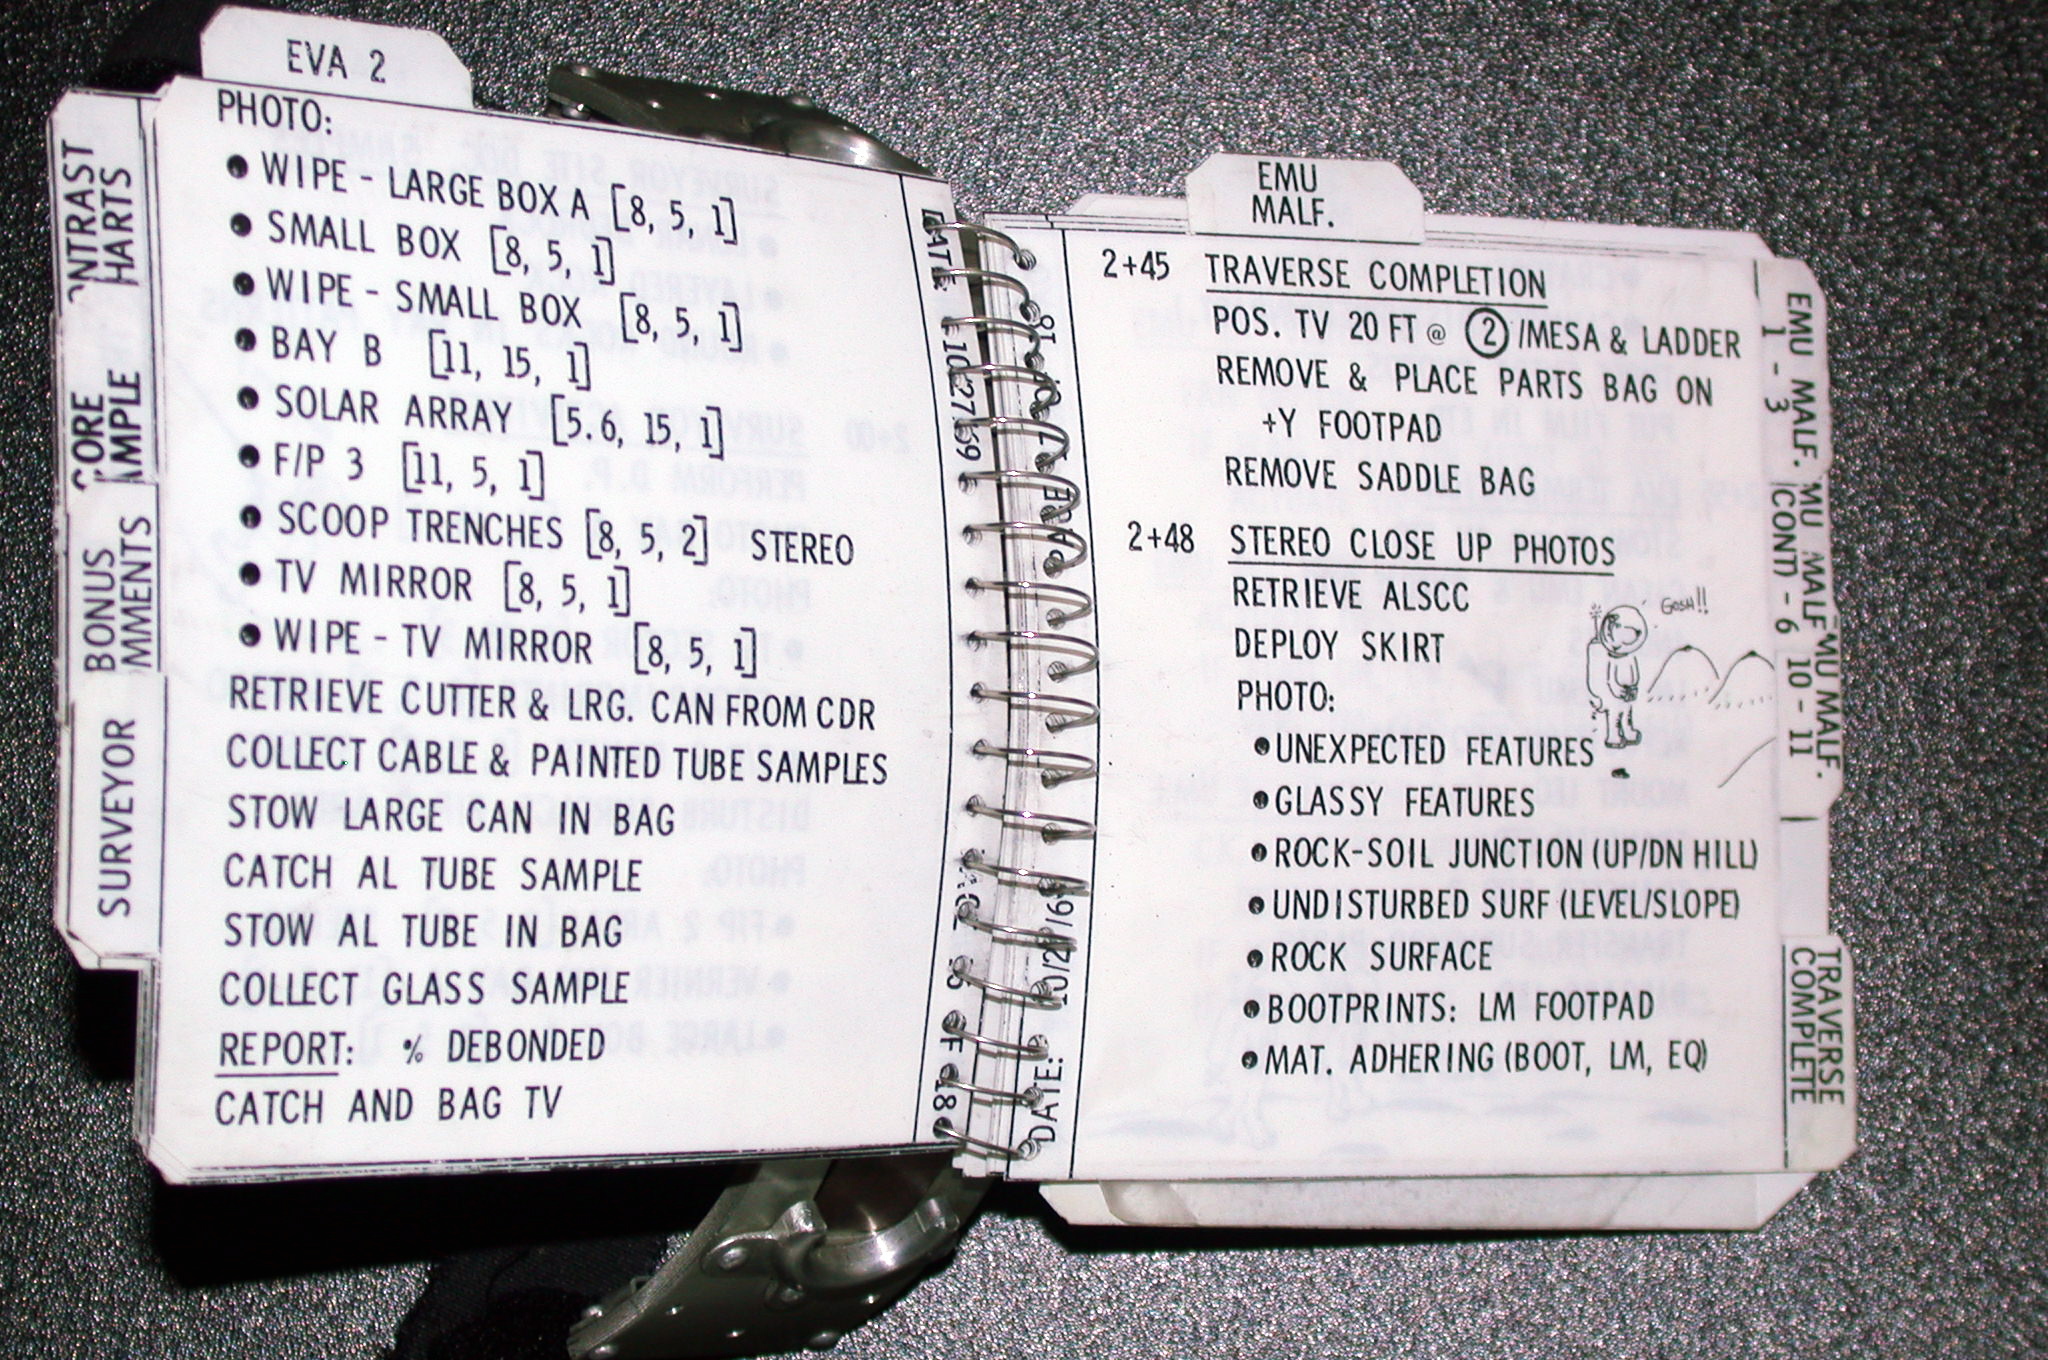 EVA 2
PHOTO:
• WIPE - LARGE BOX A [8, 5, 1]
• SMALL BOX [8, 5, 1]
• WIPE - SMALL BOX [8, 5, 1]
• BAY B [11, 15, 1]
• SOLAR ARRAY [5.6, 15, 1]
• F/P 3 [11, 5, 1]
• SCOOP TRENCHES [8, 5, 2] STEREO
• TV MIRROR [8, 5, 1]
• WIPE - TV MIRROR [8, 5, 1]
RETRIEVE CUTTER & LRG. CAN FROM CDR
COLLECT CABLE & PAINTED TUBE SAMPLES
STOW LARGE CAN IN BAG
CATCH AL TUBE SAMPLE
STOW AL TUBE IN BAG
COLLECT GLASS SAMPLE
REPORT: % DEBONDED
CATCH AND BAG TV
NTRAST
HARTS
CORE
AMPLE
BONUS
MMENTS
SURVEYOR
DATE
EMU
MALF.
2+45 TRAVERSE COMPLETION
POS. TV 20 FT @ 2 /MESA & LADDER
REMOVE & PLACE PARTS BAG ON
+Y FOOTPAD
REMOVE SADDLE BAG
2+48 STEREO CLOSE UP PHOTOS
RETRIEVE ALSCC
DEPLOY SKIRT
PHOTO:
• UNEXPECTED FEATURES
• GLASSY FEATURES
• ROCK-SOIL JUNCTION (UP/DN HILL)
• UNDISTURBED SURF (LEVEL/SLOPE)
• ROCK SURFACE
• BOOTPRINTS: LM FOOTPAD
• MAT. ADHERING (BOOT, LM, EQ)
GOSH!!
DATE:
PAGE
EMU MALF.
1 - 3
MU MALF
(CONT) - 6
MU MALF.
10 - 11
TRAVERSE
COMPLETE